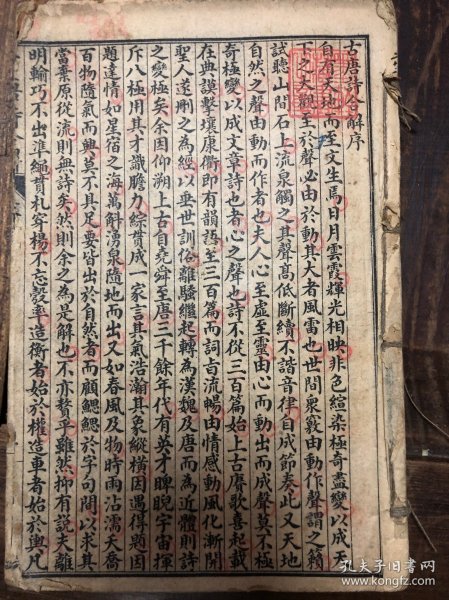 古唐詩合解序
自有天地而至文生焉日月雲霞輝光相映非色絢染極奇盡變以成天
下之大觀至於聲必由於動其大者風雷也世間衆竅由動作聲謂之籟
試聽山間石上流泉觸之其聲高低斷續不諧音律自成節奏此又天地
自然之聲由動而作者也夫人心至虛至靈由心而動出而成聲莫不極
奇極變以成文章詩也者心之聲也詩不從三百篇始上古賡歌喜起載
在典謨擊壤康衢即有韻語至三百篇而詞旨流暢由情感動風化漸開
聖人逐刪之為經以垂世訓俗離騷繼起轉為漢魏及唐而為近體則詩
之變極矣余因仰朔上古自堯舜至唐三千餘年代有英才睥睨宇宙揮
斥八極用其才識膽力綜貫成一家言其氣浩瀚其象縱横因遇得題因
題達情如星宿之海萬斛湧泉隨地而出又如春風及物時雨沾濡夭喬
百物隨氣而興莫不具足要皆出於自然者而顧鰓鰓於字句間以求其
當葉原從流則無詩矣然則余之為是解也不亦贅乎雖然抑有説夫離
明輸巧不出準繩貫札穿楊不忘彀率造衡者始於權造車者始於輿凡
孔夫子旧書网